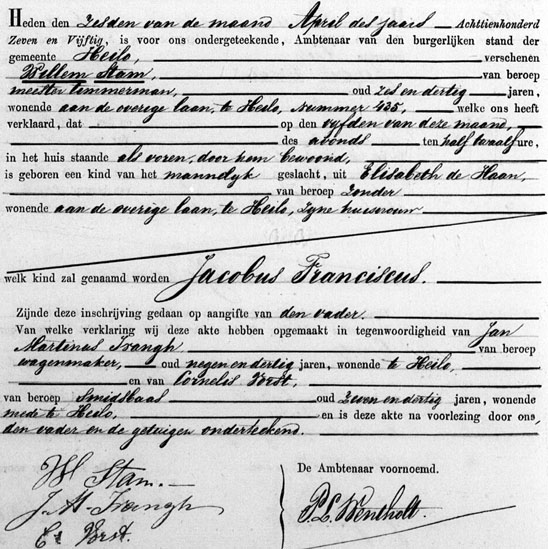 Heden den zesden van de maand April des jaars Achttienhonderd
Zeven en Vijftig, is voor ons ondergeteekende, Ambtenaar van den burgerlijken stand der
gemeente Heilo, verschenen
Willem Stam, van beroep
meester timmerman, oud zes en dertig jaren,
wonende aan de overige laan, te Heilo, Nummer 435, welke ons heeft
verklaard, dat op den vyfden van deze maand,
des avonds ten half twaalf ure,
in het huis staande als voren, door hem bewoond,
is geboren een kind van het mannelyk geslacht, uit Elisabeth de Haan,
van beroep Zonder
wonende aan de overige laan, te Heilo, zyne huisvrouw
welk kind zal genaamd worden Jacobus Franciscus.
Zijnde deze inschrijving gedaan op aangifte van den vader.
Van welke verklaring wij deze akte hebben opgemaakt in tegenwoordigheid van Jan
Martinus van beroep
wagenmaker, oud negen en dertig jaren, wonende te Heilo,
en van Cornelis Vorst,
van beroep Smidsbaas oud Zeven en dertig jaren, wonende
mede te Heilo, en is deze akte na voorlezing door ons,
den vader en de getuigen onderteekend.
W Stam.
J. M.
C Vorst.
De Ambtenaar voornoemd.
P.L. Wentholt.